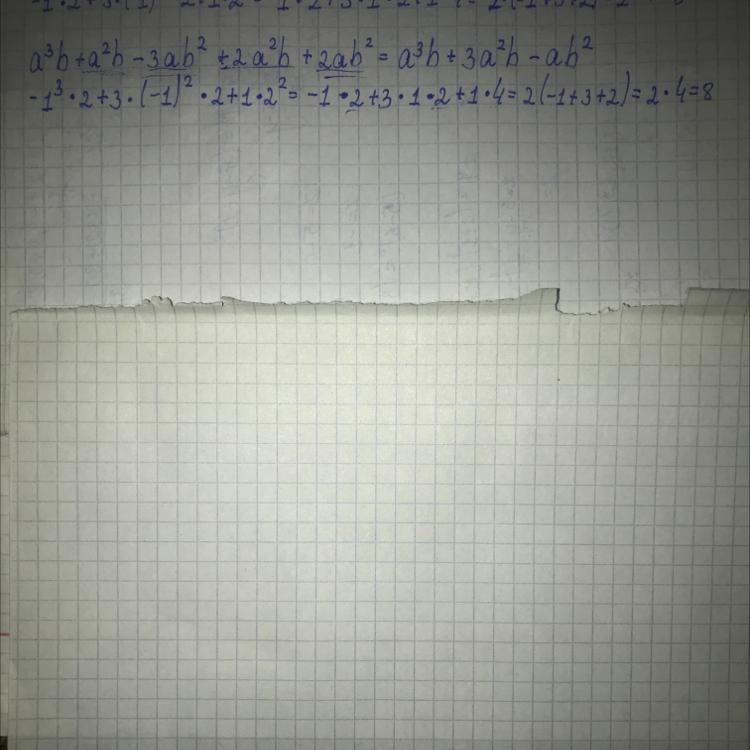 a³b + a²b - 3ab² + 2a²b + 2ab² = a³b + 3a²b - ab²
-1³ · 2 + 3 · (-1)² · 2 + 1 · 2² = -1 · 2 + 3 · 1 · 2 + 1 · 4 = 2(-1+3+2) = 2 · 4 = 8